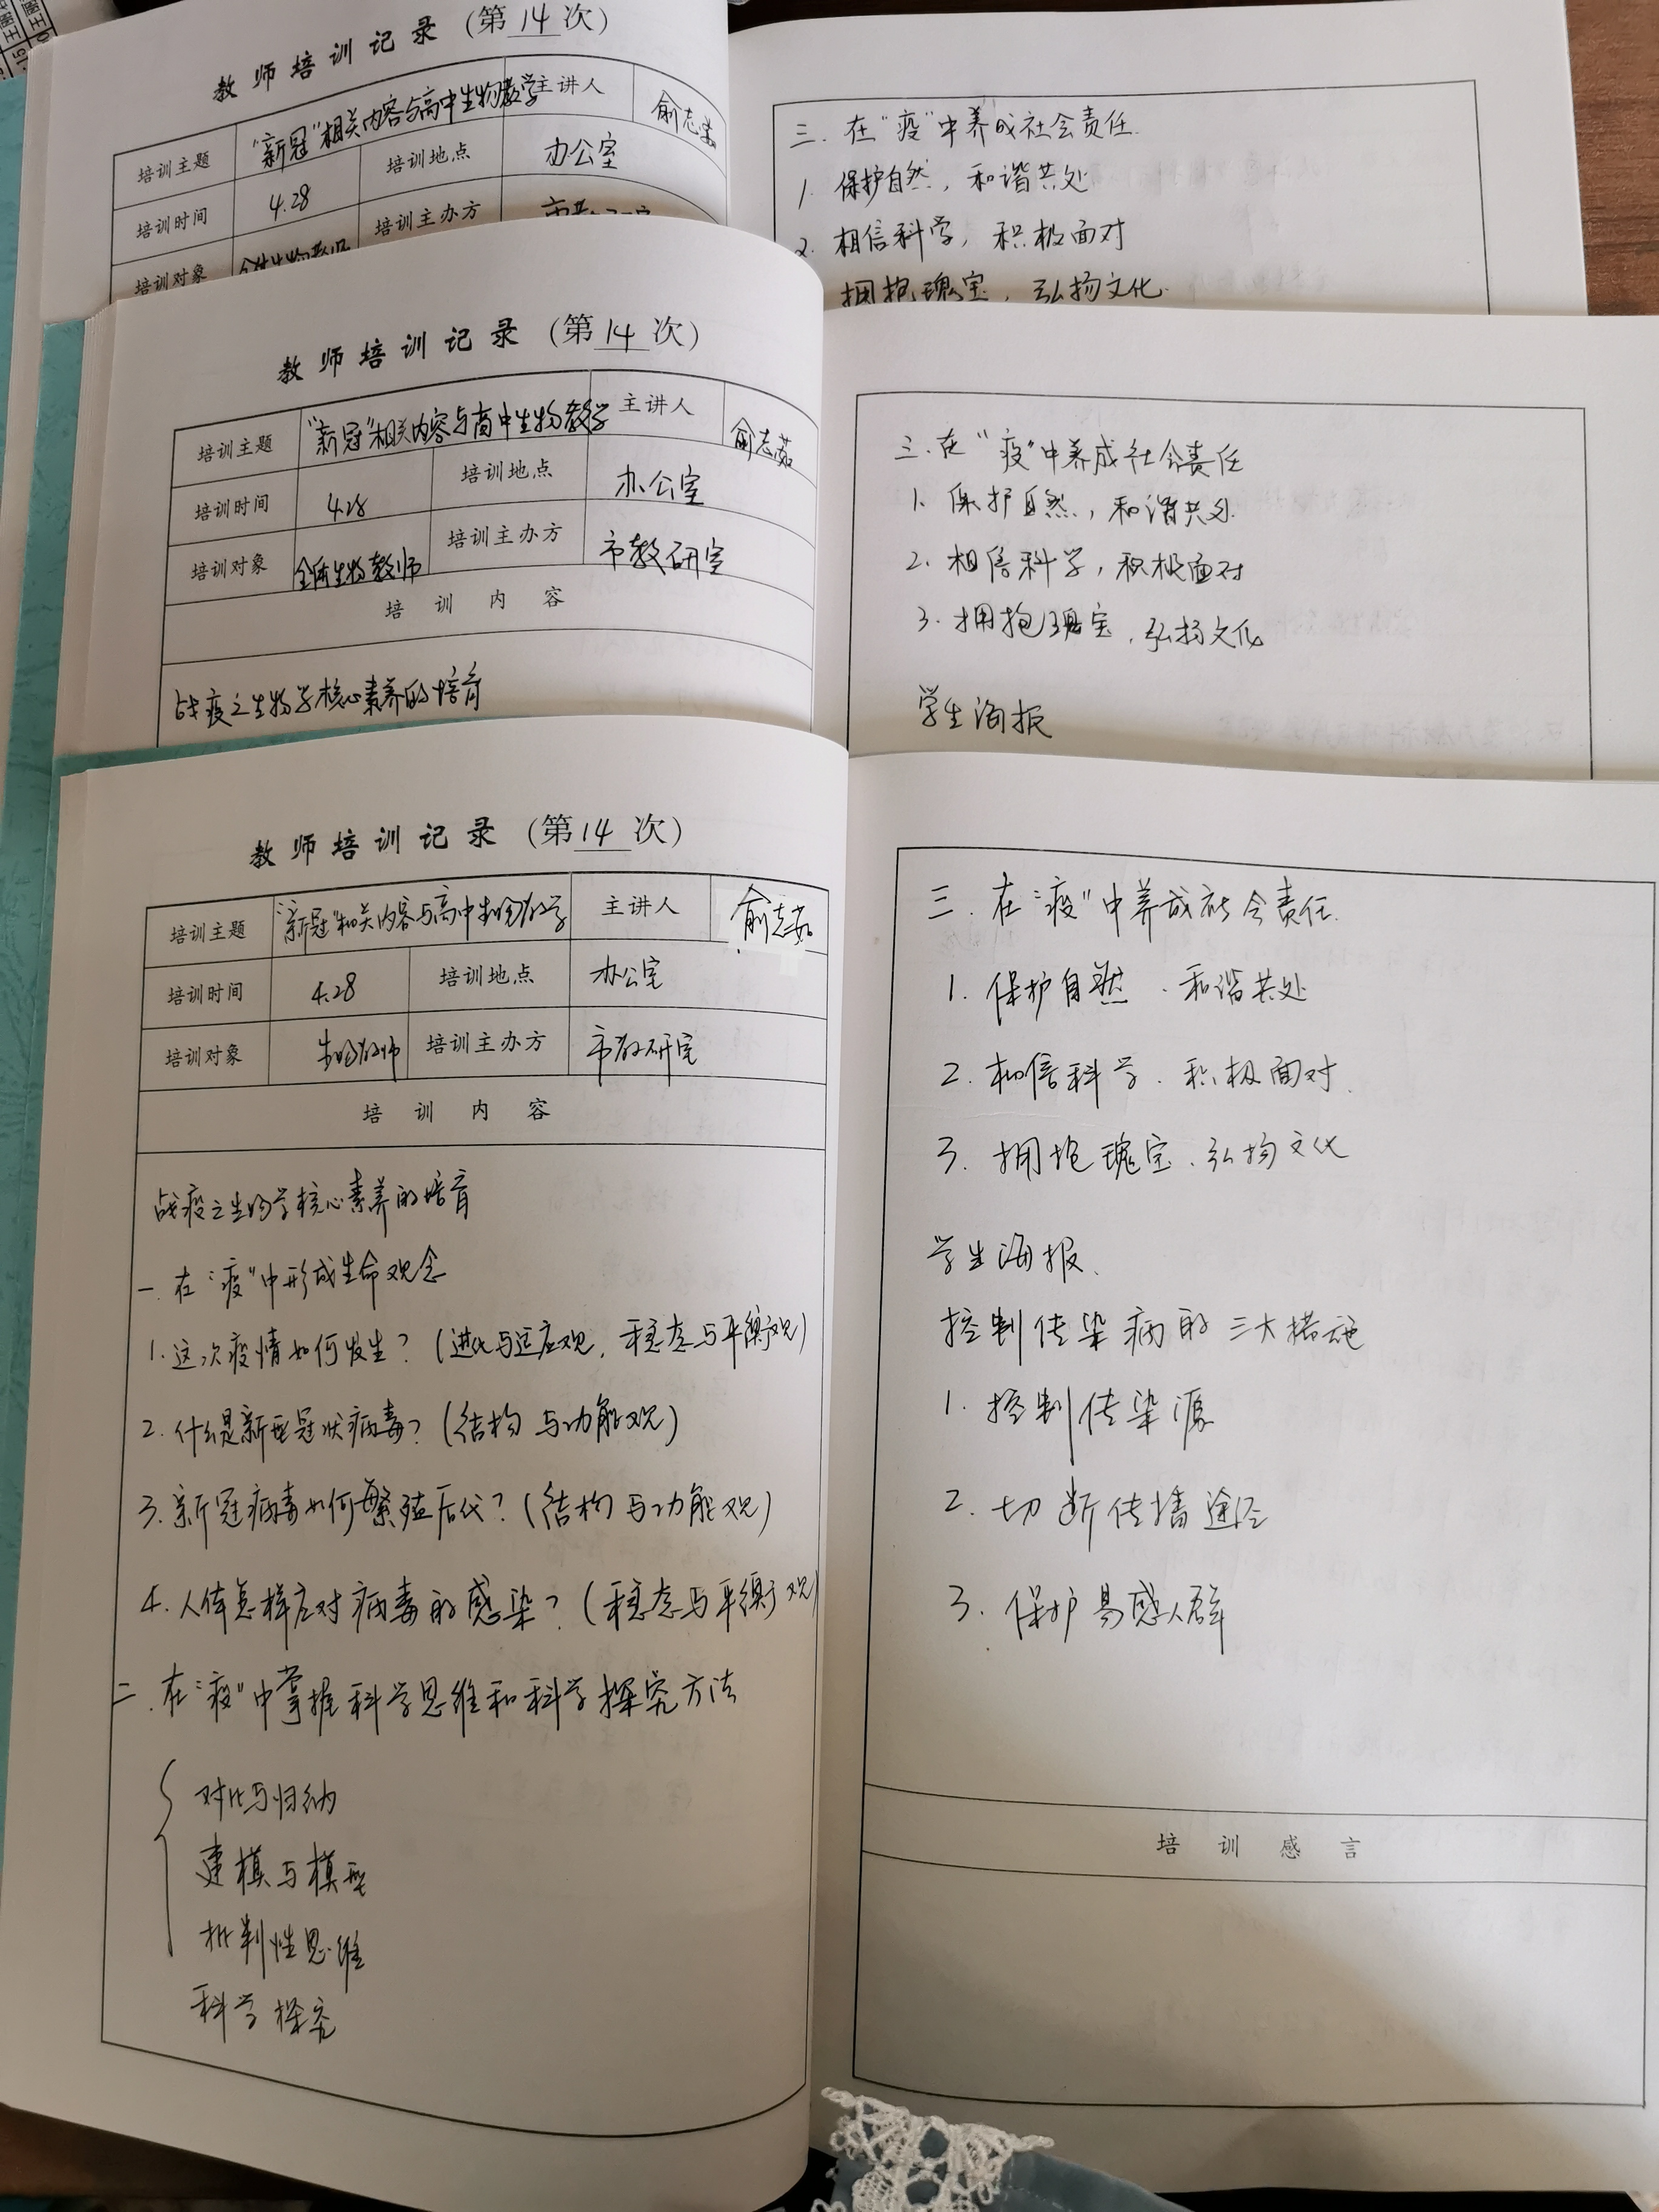 教师培训记录（第14次）
培训主题 "新冠"相关内容与高中生物教学 主讲人
培训时间 4.28 培训地点 办公室
培训对象 全体生物教师 培训主办方
三.在"疫"中养成社会责任.
1.保护自然，和谐共处
2.相信科学，积极面对
拥抱瑰宝，弘扬文化.
教师培训记录（第14次）
培训主题 "新冠"相关内容与高中生物教学 主讲人 俞志茹
培训时间 4.28 培训地点 办公室
培训对象 全体生物教师 培训主办方 市教研室
培训内容
战疫之生物学核心素养的培育
三.在"疫"中养成社会责任
1.保护自然，和谐共处.
2.相信科学，积极面对
3.拥抱瑰宝，弘扬文化
学生海报
教师培训记录（第14次）
培训主题 "新冠"相关内容与高中生物教学 主讲人 俞志茹
培训时间 4.28 培训地点 办公室
培训对象 生物教师 培训主办方 市教研室
培训内容
战疫之生物学核心素养的培育
一.在"疫"中形成生命观念
1.这次疫情如何发生？（进化与适应观，稳态与平衡观）
2.什么是新型冠状病毒？（结构与功能观）
3.新冠病毒如何繁殖后代？（结构与功能观）
4.人体怎样应对病毒的感染？（稳态与平衡观）
二.在"疫"中掌握科学思维和科学探究方法
对比与归纳
建模与模型
批判性思维
科学探究
三.在"疫"中养成社会责任.
1.保护自然.和谐共处
2.相信科学.积极面对.
3.拥抱瑰宝.弘扬文化
学生海报.
控制传染病的三大措施
1.控制传染源
2.切断传播途径
3.保护易感人群
培训感言